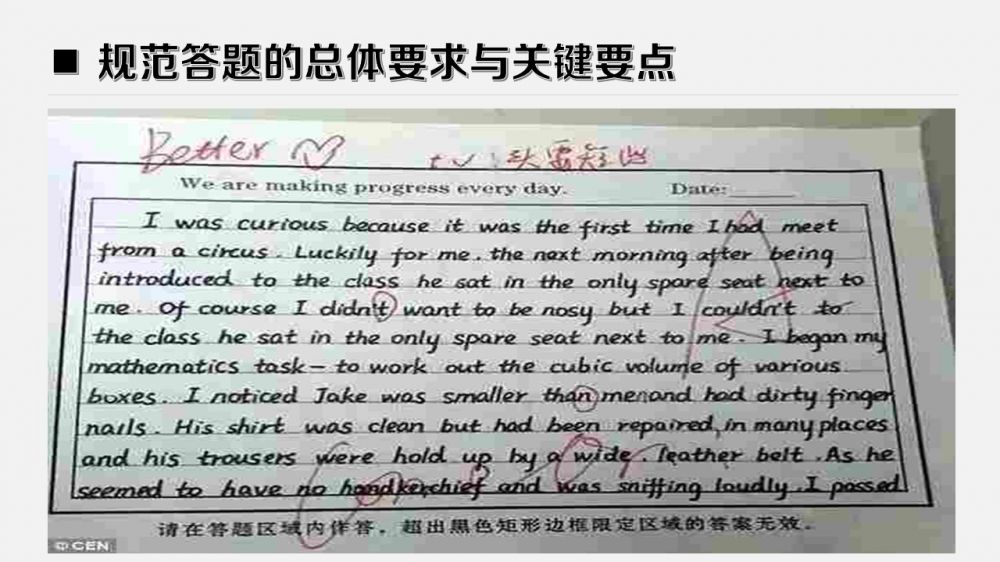 规范答题的总体要求与关键要点
Better
t v : 头要短出
We are making progress every day. Date:
I was curious because it was the first time I had meet
from a circus. Luckily for me. the next morning after being
introduced to the class he sat in the only spare seat next to
me. Of course I didn't want to be nosy but I couldn't to
the class he sat in the only spare seat next to me. I began my
mathematics task - to work out the cubic volume of various
boxes. I noticed Jake was smaller than menand had dirty finger
nails. His shirt was clean but had been repaired, in many places
and his trousers were hold up by a wide. leather belt. As he
seemed to have no handkerchief and was sniffing loudly. I passed
请在答题区域内作答，超出黑色矩形边框限定区域的答案无效。
© CEN